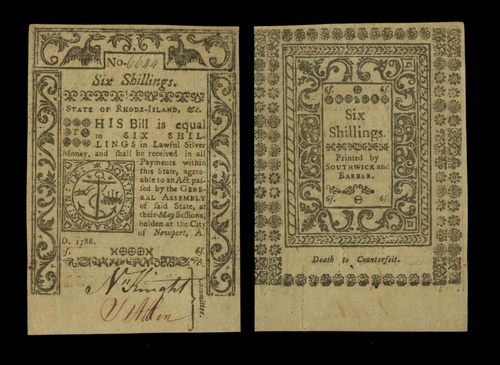 No. 6644
Six Shillings.
STATE OF RHODE-ISLAND, &c.
THIS Bill is equal
to SIX SHIL-
LINGS in Lawful Silver
Money, and shall be received in all
Payments within
this State, agree-
able to an Act pas-
sed by the GENE-
RAL ASSEMBLY
of said State, at
their May Sessions,
holden at the City
of Newport, A.
D. 1786.
6s.
Knight
Committee.
6s. 6s.
Six
Shillings.
Printed by
SOUTHWICK and
BARBER.
6s. 6s.
Death to Counterfeit.